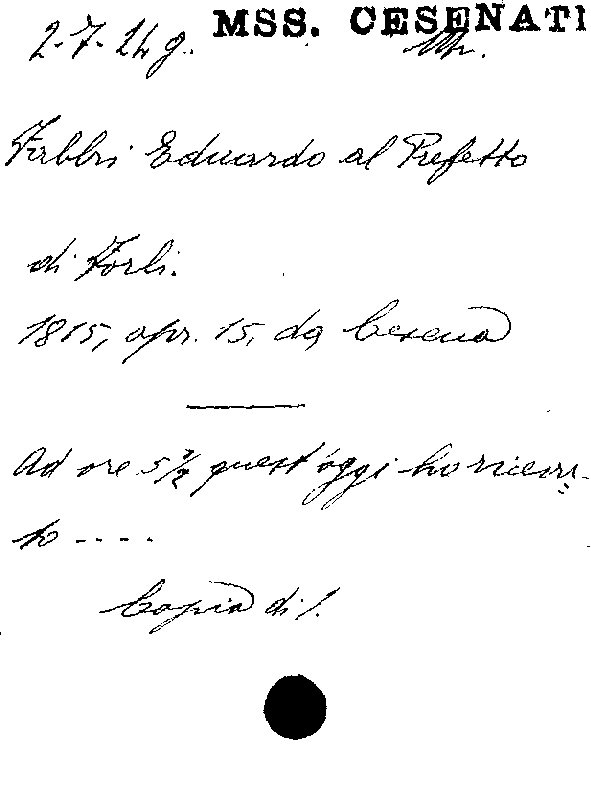 MSS. CESENATI
2-7-24 g.
Fabbri Eduardo al Prefetto
di Forlì.
1815, apr. 15, da Cesena
Ad ore 5 1/2 quest'oggi ho ricevu-
to ----
Copia di l.